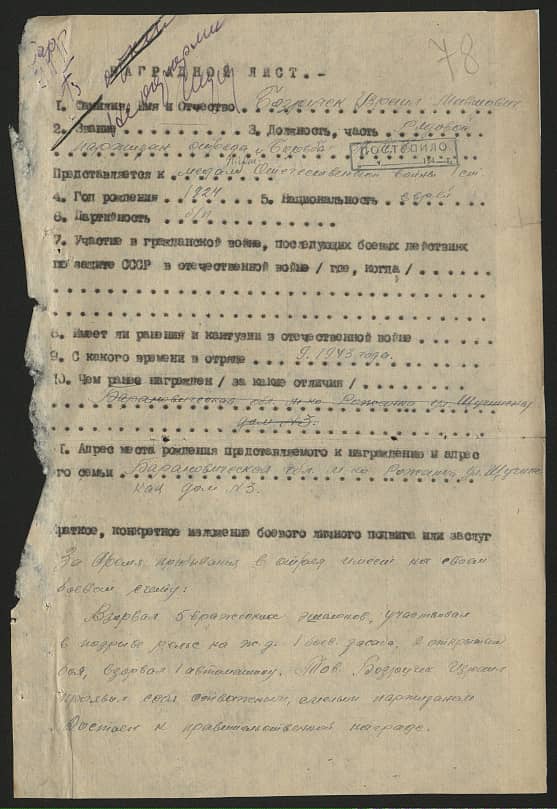 78
НАГРАДНОЙ ЛИСТ.-
1. Фамилия, Имя и Отчество
2. Звание . . . . . . . . . . 3. Должность, часть Рядовой
партизан отряда
Представляется к медали Отечественной войны 1 ст.
4. Год рождения 1924 5. Национальность еврей
6. Партийность б/п
7. Участие в гражданской войне, последующих боевых действиях
по защите СССР в отечественной войне / где, когда / . . . . . .
8. Имеет ли ранения и контузии в отечественной войне . . . . . .
9. С какого времени в отряде 1943 года.
10. Чем ранее награжден / за какие отличия / . . . . . . . . . .
Барановическая обл.
дом №3.
1. Адрес места рождения представляемого к награждению и адрес
го семьи Барановическая обл.
кая дом №3.
раткое, конкретное изложение боевого личного подвига или заслуг
За время пребывания в отряде имеет на своем
боевом счету:
Взорвал 5 вражеских эшелонов, участвовал
в подрыве рельс на ж.д. 1 боев. засада, 2 открытых
боя, взорвал 1 автомашину. Тов. Израил
проявил себя отважным, смелым партизаном
Достоен к правительственной награде.